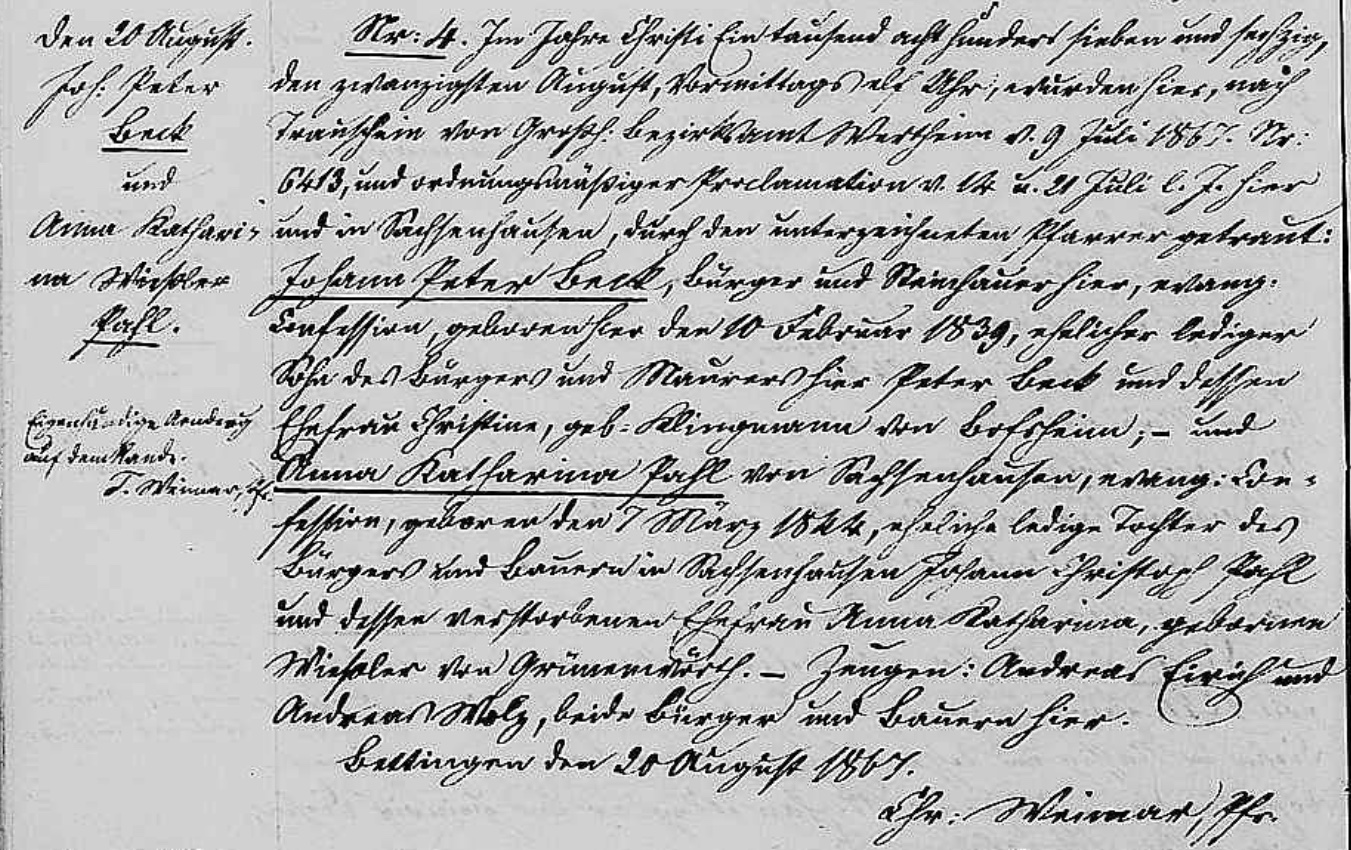 Den 20 August.
Joh: Peter
Beck
und
Anna Kathari-
na Wießler
Pahl.
Eigenhändige Aenderung
auf dem Rande.
T. Weimar, Pfr.
Nr: 4. Im Jahre Christi Ein tausend acht hundert sieben und sechzig,
den zwanzigsten August, Vormittags elf Uhr, wurden hier, nach
Trauschein von Großh: Bezirksamt Wertheim v. 9 Juli 1867. Nr:
6413, und ordnungsmäßiger Proclamation v. 14 u. 21 Juli l. J. hier
und in Sachsenhausen, durch den unterzeichneten Pfarrer getraut:
Johann Peter Beck, Bürger und Steinhauer hier, evang:
Confession, geboren hier den 10 Februar 1839, ehelicher lediger
Sohn des Bürgers und Maurers hier Peter Beck und dessen
Ehefrau Christine, geb: Klingmann von Bofsheim; – und
Anna Katharina Pahl von Sachsenhausen, evang: Con-
fession, geboren den 7 März 1844, eheliche ledige Tochter des
Bürgers und Bauern in Sachsenhausen Johann Christoph Pahl
und dessen verstorbenen Ehefrau Anna Katharina, gebornen
Wießler von Grünenwörth. – Zeugen: Andreas Eirich und
Andreas Wolz, beide Bürger und Bauern hier.
Bettingen den 20 August 1867.
Chr: Weimar, Pfr.